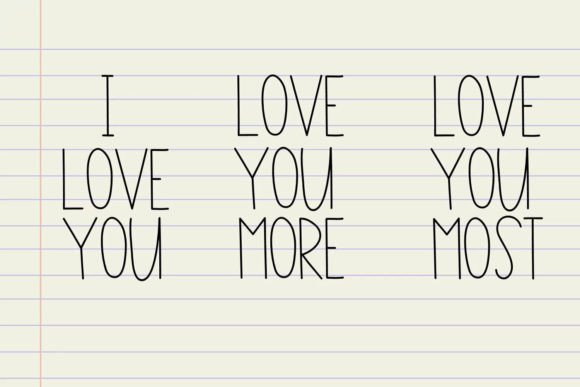 I
LOVE
YOU
LOVE
YOU
MORE
LOVE
YOU
MOST